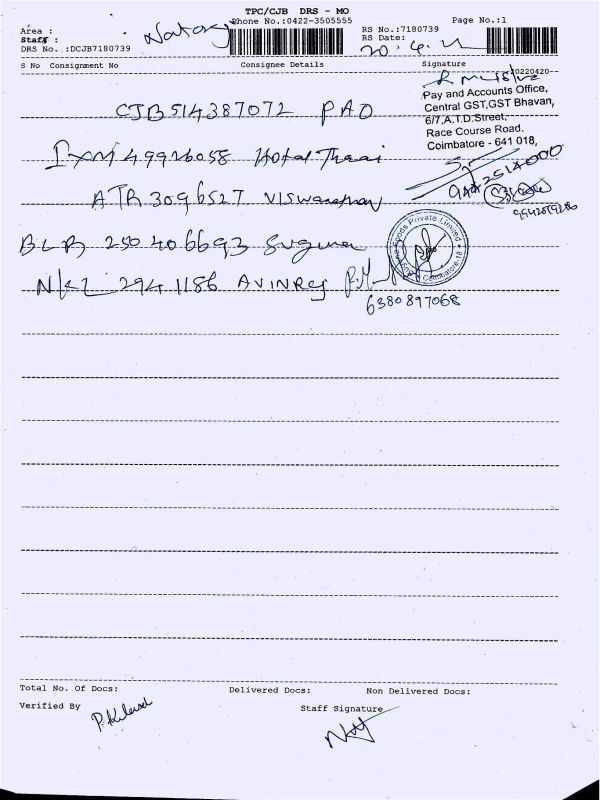 TPC/CJB DRS - MO
Phone No.:0422-3505555
Page No.:1
Area :
Staff : Nataraj
DRS No. :DCJB7180739
RS No.:7180739
RS Date:
20.4.22
S No Consignment No Consignee Details Signature
20220420
CJB514387072 PAO
Pay and Accounts Office,
Central GST,GST Bhavan,
6/7,A.T.D.Street,
Race Course Road.
Coimbatore - 641 018,
IXM 49926058 Hotel Thaai
ATR 3096527 Viswanathan
BLR 250406693 Suguna
Foods Private Limited
Coimbatore-18
NKL 2941186 AVINRej
6380897068
Total No. Of Docs: Delivered Docs: Non Delivered Docs:
Verified By
Staff Signature